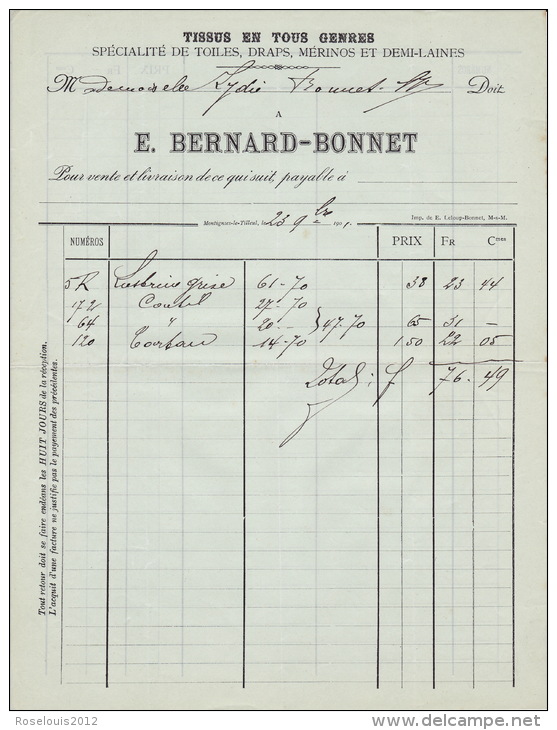 TISSUS EN TOUS GENRES
SPÉCIALITÉ DE TOILES, DRAPS, MÉRINOS ET DEMI-LAINES
Mademoiselle Lydie Bonnet Doit
A
E. BERNARD-BONNET
Pour vente et livraison de ce qui suit, payable à
Montagnes-le-Tilleul, le 23 9bre 1901. Imp. de E. Leloup-Bonnet, M-s-M.
NUMÉROS PRIX FR Cmes
Lustrine grise 61-70 38 23 44
172 Coutil 27-70
64 " 20.- } 47.70 65 31 -
120 14-70 150 22 05
Total : f 76.49
Tout retour doit se faire endéans les HUIT JOURS de la réception.
L'acquit d'une facture ne justifie pas le payement des précédentes.
Roselouis2012
delcampe.net